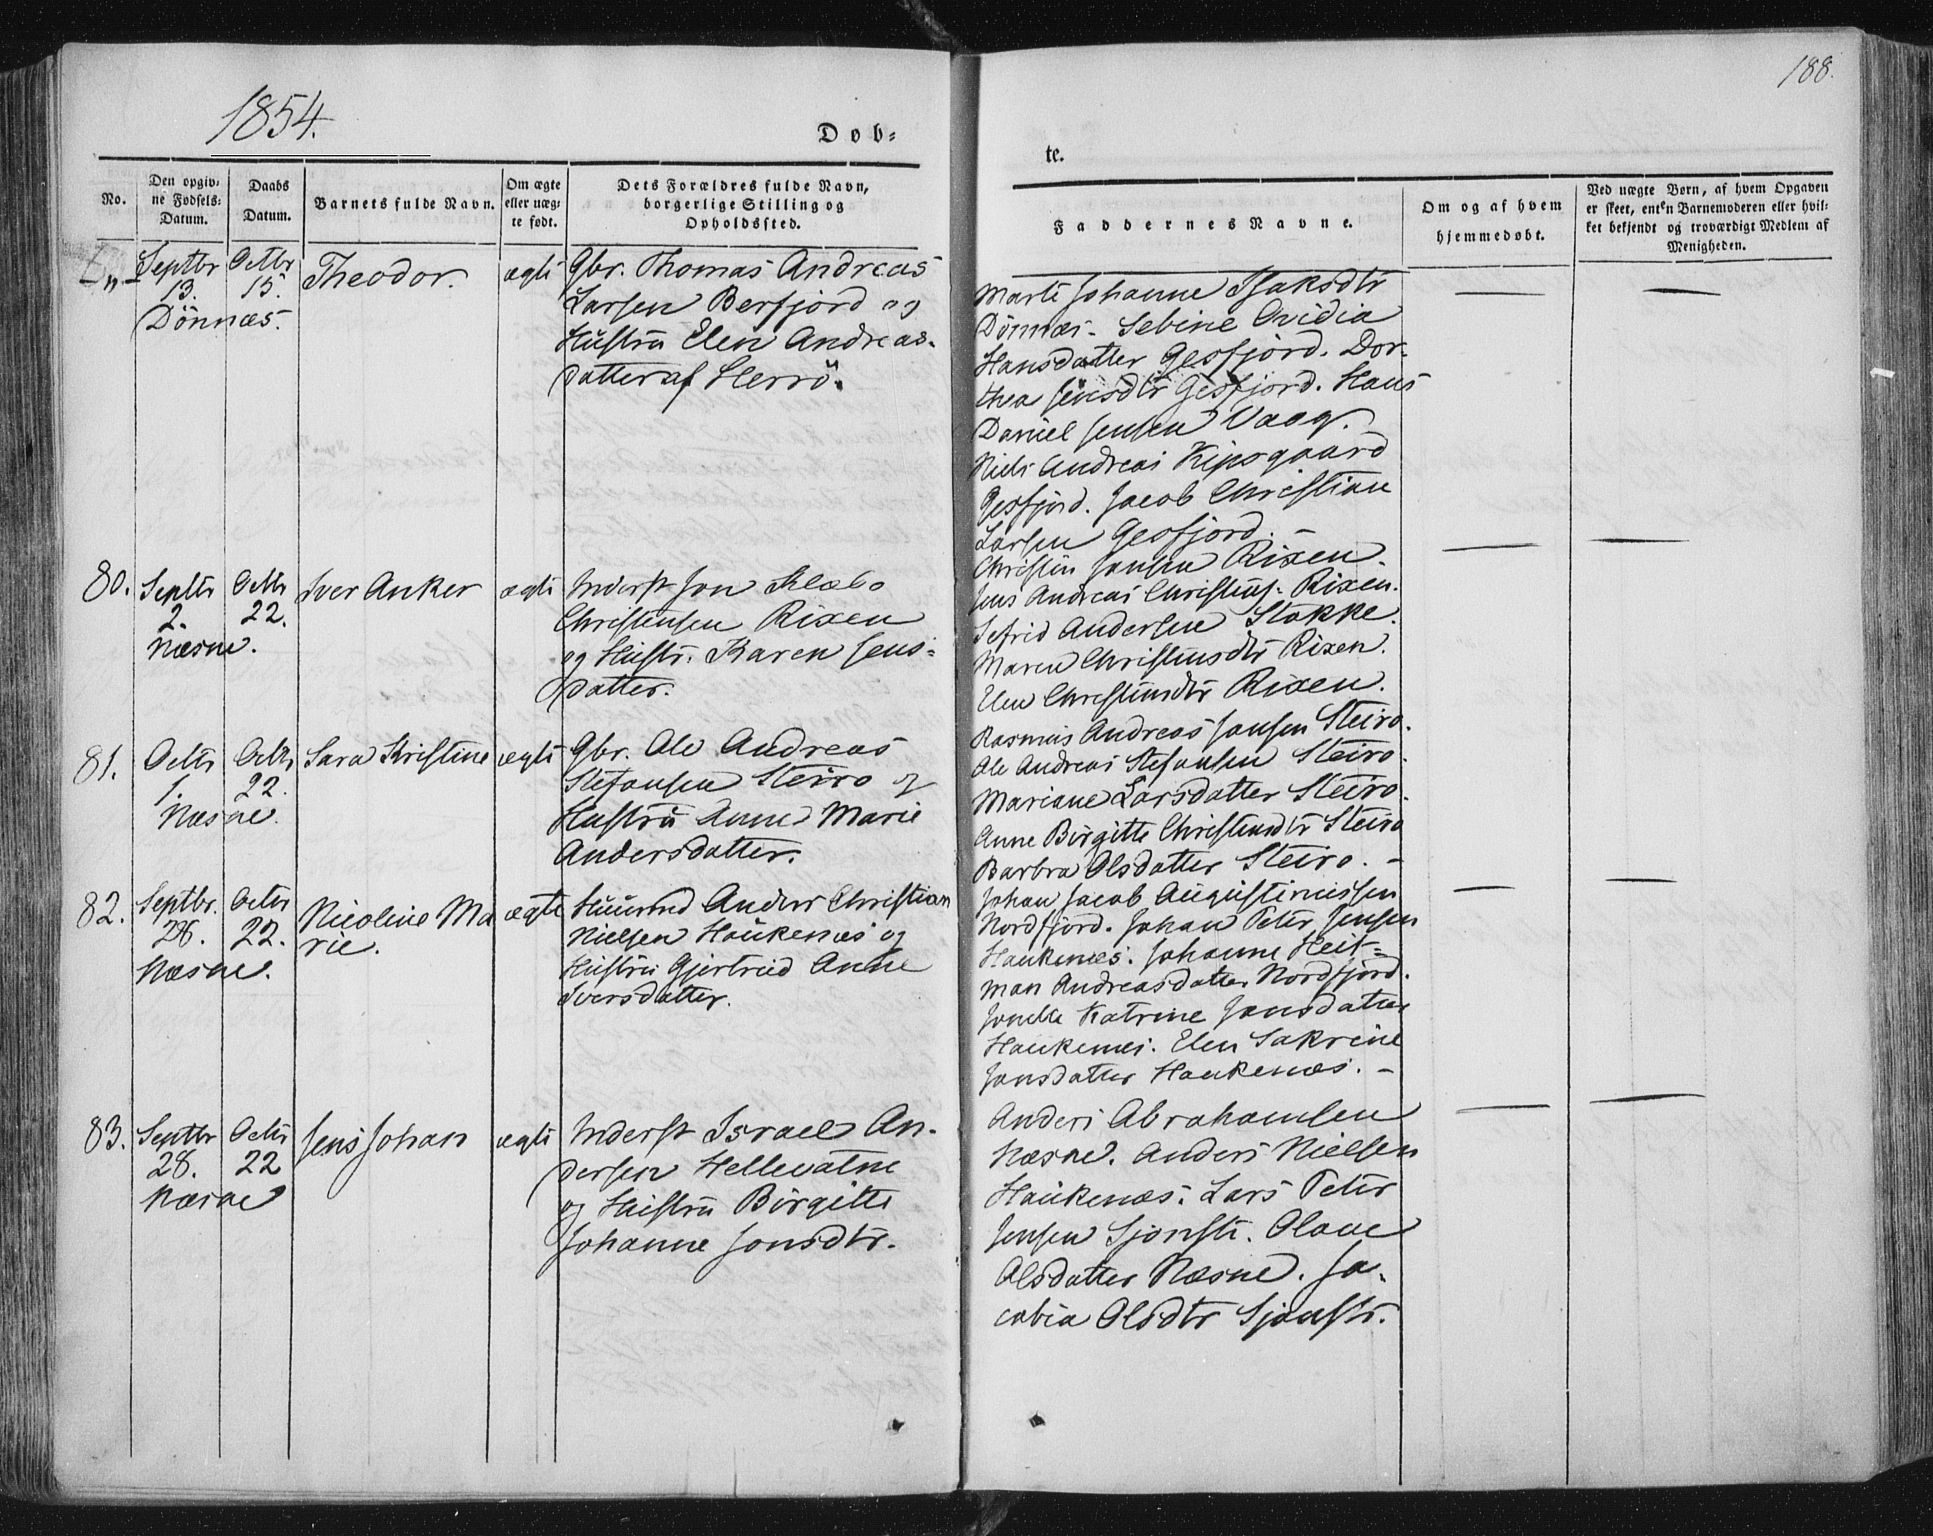 1854.
188.
Døb-
te.
No.
Den opgiv-
ne Fødsels-
Datum.
Daabs
Datum.
Barnets fulde Navn.
Om ægte
eller uæg-
te født.
Dets Forældres fulde Navn,
borgerlige Stilling og
Opholdsted.
Faddernes Navne.
Om og af hvem
hjemmedøbt.
Ved uægte Børn, af hvem Opgaven
er skeet, enten Barnemoderen eller hvil-
ket bekjendt og troværdigt Medlem af
Menigheden.
Septbr
13.
Dönnæs.
Octbr
15.
Theodor.
ægte
Gbr. Thomas Andreas
Larsen Berfjord og
Hustrü Elen Andreas-
datter af Herrö.
Marte Johanne Isaksdtr
Dönnæs. Sebine Ovidia
Hansdatter Gesfjord. Dor-
thea Jensdtr Gesfjord. Hans
Daniel Jensen Vaag.
Niels Andreas Kipsgaard
Gesfjord. Jacob Christian
Larsen Gesfjord. -
80.
Septbr
2.
Næsne.
Octbr
22.
Iver Anker
ægte
Inderst Jon Klæbo
Christensen Rixen
og Hustr. Karen Jens-
datter.
Christen Jonsen Rixen.
Jens Andreas Christens. Rixen.
Sefrid Andersen Stokke.
Maren Christensdtr Rixen.
Elen Christensdtr Rixen.
81.
Octbr
1.
Næsne.
Octbr
22.
Sara Kristine
ægte
Gbr. Ole Andreas
Stefansen Steiro og
Hustrü Anne Marie
Andersdatter.
Rasmus Andreas Jonsen Steiro.
Ole Andreas Stefansen Steiro.
Mariane Larsdatter Steiro.
Anne Birgitte Christensdtr Steiro
Barbra Olsdatter Steiro. -
82.
Septbr.
28.
Næsne.
Octbr
22.
Nicoline Ma
rie.
ægte
Huusmd Anders Christian
Nielsen Haükenæs og
Hustrü Gjertrud Anne
Iversdatter.
Johan Jacob Augustinussen
Nordfjord. Johan Peter Jensen
Haukenæs. Johanne Heit-
man Andreasdatter Nordfjord.
Jonetta Katrine Jonsdatter
Haukenæs. Elen Sakrine
Jonsdatter Haukenæs. -
83.
Septbr
28.
Næsne
Octbr
22
Jens Johan
ægte
Inderst Israel An-
dersen Hellevatne
og Hustrü Birgitte
Johanne Jonsdtr.
Anders Abrahamsen
Næsne. Anders Nielsen
Haükenæs. Lars Peter
Jensen Sjonstr. Olave
Olsdatter Næsne. Ja-
cobia Olsdtr Sjonstr.